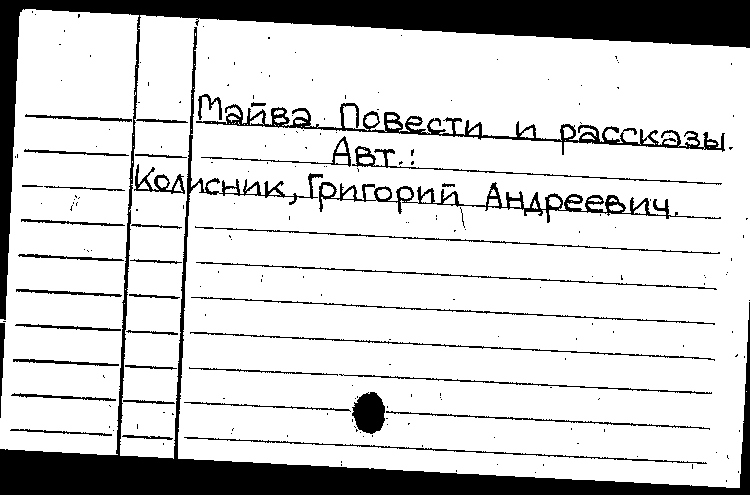 Майва. Повести и рассказы.
Авт.:
Колисник, Григорий Андреевич.